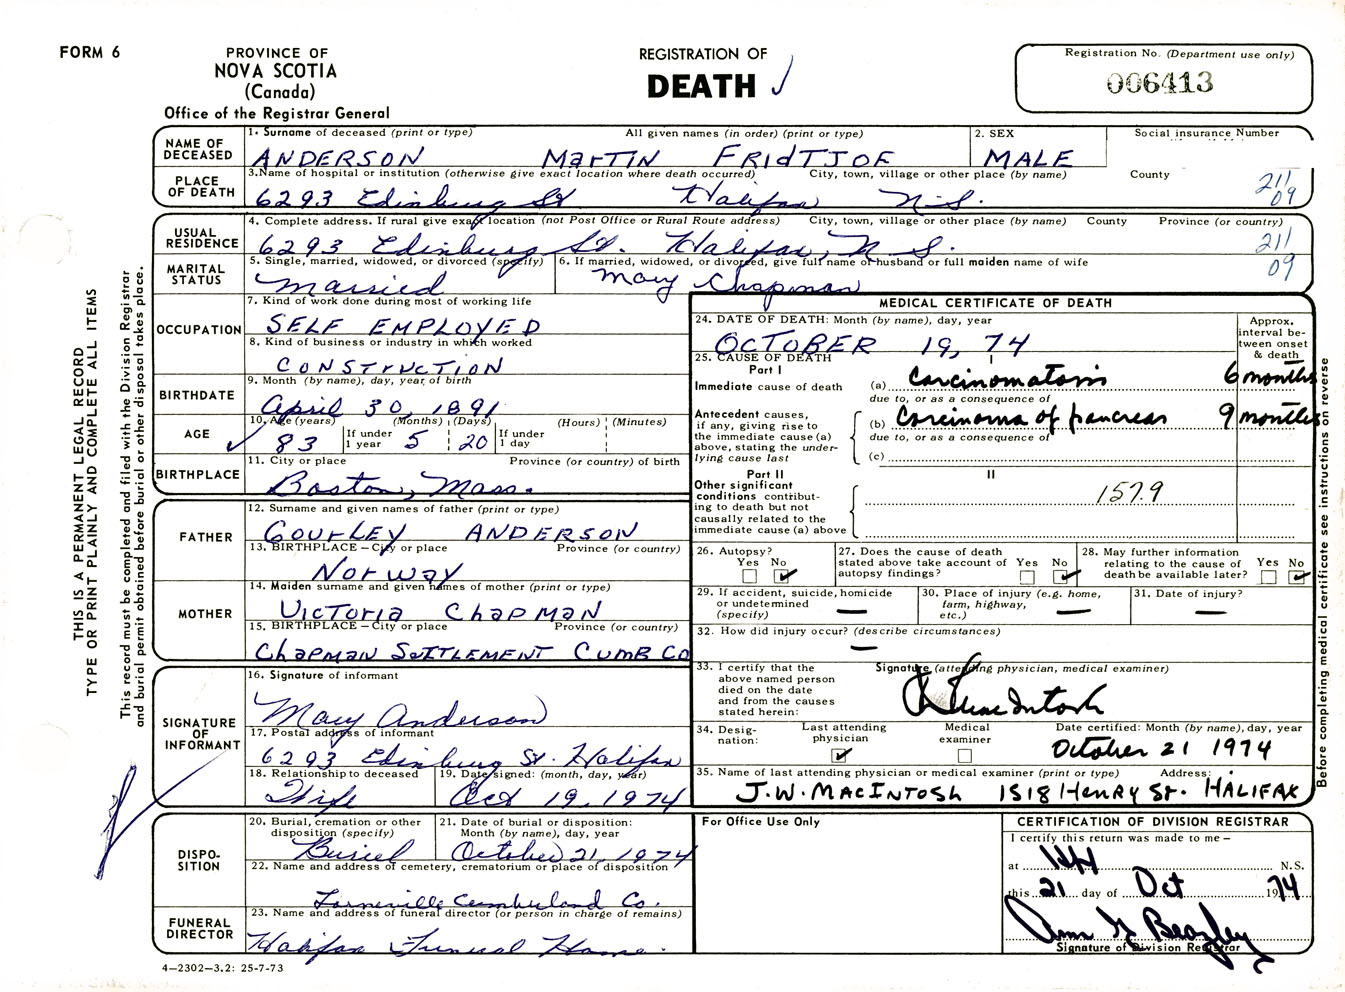 FORM 6
PROVINCE OF
NOVA SCOTIA
(Canada)
Office of the Registrar General
REGISTRATION OF
DEATH
Registration No. (Department use only)
006413
NAME OF DECEASED
1. Surname of deceased (print or type) All given names (in order) (print or type)
ANDERSON MARTIN FRIDTJOF
2. SEX
MALE
Social insurance Number
PLACE OF DEATH
3. Name of hospital or institution (otherwise give exact location where death occurred) City, town, village or other place (by name) County
6293 Edinburg St Halifax N.S.
211
09
USUAL RESIDENCE
4. Complete address. If rural give exact location (not Post Office or Rural Route address) City, town, village or other place (by name) County Province (or country)
6293 Edinburg St. Halifax, N S.
211
09
MARITAL STATUS
5. Single, married, widowed, or divorced (specify)
Married
6. If married, widowed, or divorced, give full name of husband or full maiden name of wife
Mary Chapman
OCCUPATION
7. Kind of work done during most of working life
SELF EMPLOYED
8. Kind of business or industry in which worked
CONSTRUCTION
BIRTHDATE
9. Month (by name), day, year of birth
April 30, 1891
AGE
10. Age (years) (Months) (Days) (Hours) (Minutes)
83 If under 1 year 5 20 If under 1 day
BIRTHPLACE
11. City or place Province (or country) of birth
Boston, Mass.
FATHER
12. Surname and given names of father (print or type)
GOURLEY ANDERSON
13. BIRTHPLACE – City or place Province (or country)
Norway
MOTHER
14. Maiden surname and given names of mother (print or type)
VICTORIA CHAPMAN
15. BIRTHPLACE – City or place Province (or country)
CHAPMAN SETTLEMENT CUMB CO
SIGNATURE OF INFORMANT
16. Signature of informant
Mary Anderson
17. Postal address of informant
6293 Edinburg St. Halifax
18. Relationship to deceased
Wife
19. Date signed: (month, day, year)
Oct 19, 1974
DISPOSITION
20. Burial, cremation or other disposition (specify)
Buriel
21. Date of burial or disposition: Month (by name), day, year
October 21, 1974
22. Name and address of cemetery, crematorium or place of disposition
Cumberland Co.
FUNERAL DIRECTOR
23. Name and address of funeral director (or person in charge of remains)
Halifax Funeral Home.
MEDICAL CERTIFICATE OF DEATH
24. DATE OF DEATH: Month (by name), day, year
OCTOBER 19, 74
Approx. interval between onset & death
25. CAUSE OF DEATH
Part I
I
Immediate cause of death (a) Carcinomatosis 6 months
due to, or as a consequence of
Antecedent causes, if any, giving rise to the immediate cause (a) above, stating the underlying cause last
(b) Carcinoma of pancreas 9 months
due to, or as a consequence of
(c)
Part II
II
Other significant conditions contributing to death but not causally related to the immediate cause (a) above
157.9
26. Autopsy? Yes No
27. Does the cause of death stated above take account of autopsy findings? Yes No
28. May further information relating to the cause of death be available later? Yes No
29. If accident, suicide, homicide or undetermined (specify) —
30. Place of injury (e.g. home, farm, highway, etc.) —
31. Date of injury? —
32. How did injury occur? (describe circumstances)
—
33. I certify that the above named person died on the date and from the causes stated herein:
Signature (attending physician, medical examiner)
34. Designation: Last attending physician Medical examiner
Date certified: Month (by name), day, year
October 21 1974
35. Name of last attending physician or medical examiner (print or type) Address:
J.W. MACINTOSH 1518 HENRY ST. HALIFAX
For Office Use Only
CERTIFICATION OF DIVISION REGISTRAR
I certify this return was made to me –
at N.S.
this 21 day of Oct 1974
Ann Beazley
Signature of Division Registrar
THIS IS A PERMANENT LEGAL RECORD
TYPE OR PRINT PLAINLY AND COMPLETE ALL ITEMS
This record must be completed and filed with the Division Registrar
and burial permit obtained before burial or other disposal takes place.
Before completing medical certificate see instructions on reverse
4—2302—3.2: 25-7-73